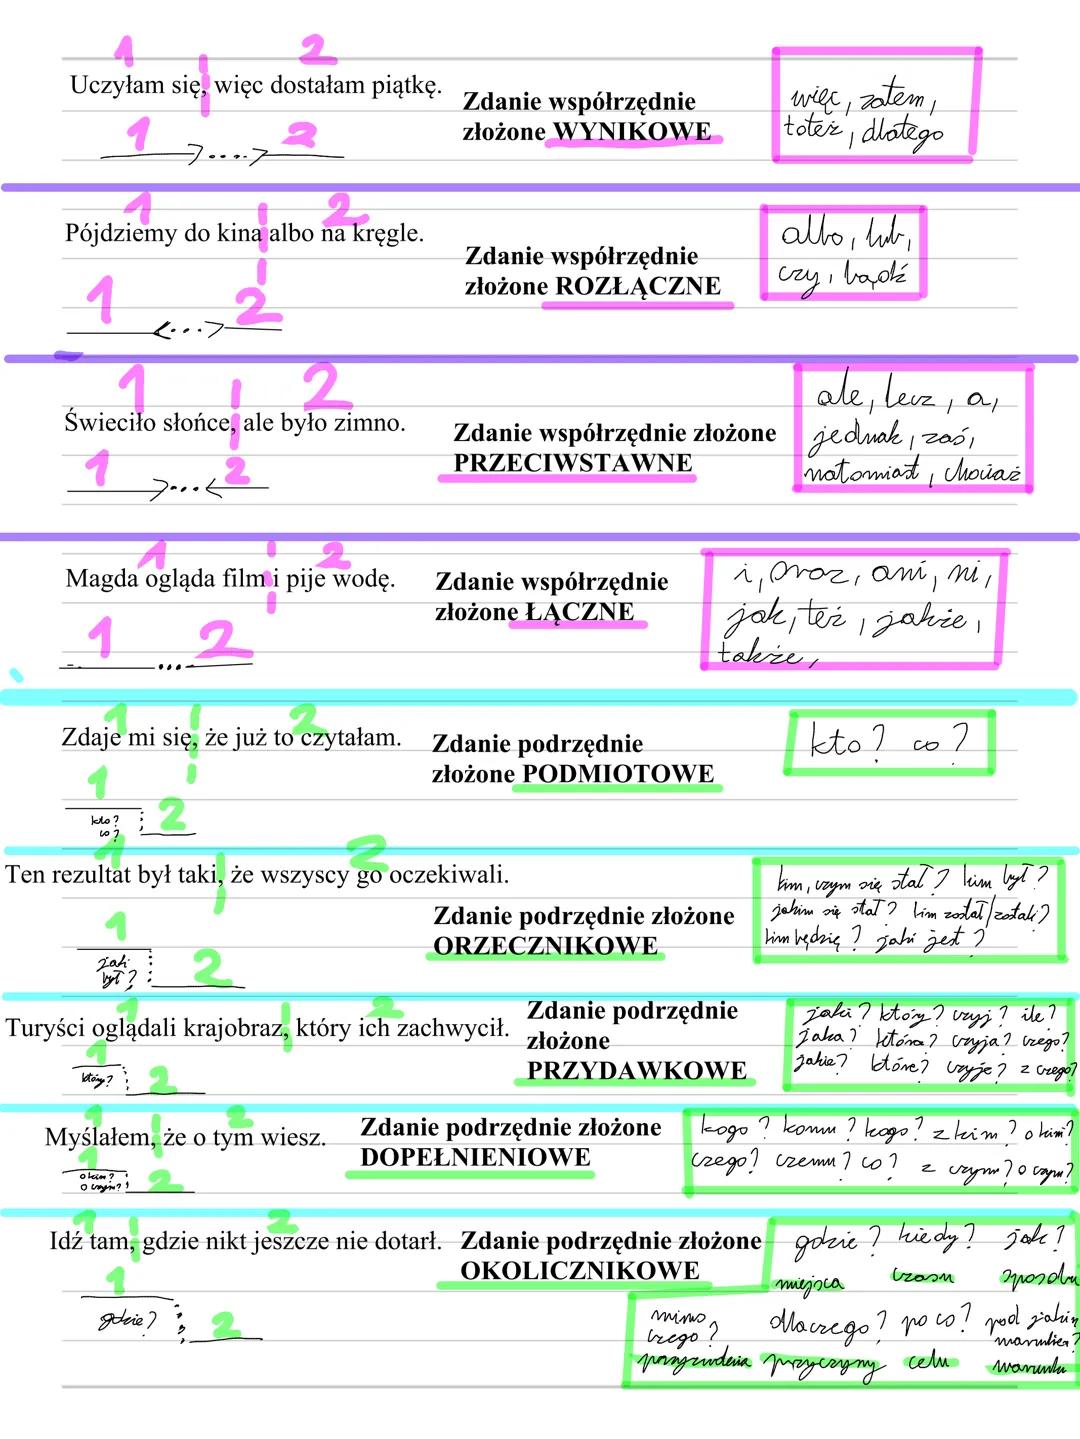 1 2
Uczyłam się, więc dostałam piątkę.
1 2
Zdanie współrzędnie
złożone WYNIKOWE
więc, zatem,
toteż, dlatego
1 2
Pójdziemy do kina albo na kręgle.
1 2
Zdanie współrzędnie
złożone ROZŁĄCZNE
albo, lub,
czy, bądź
1 2
Świeciło słońce, ale było zimno.
1 2
Zdanie współrzędnie złożone
PRZECIWSTAWNE
ale, lecz, a,
jednak, zaś,
natomiast, chociaż
1 2
Magda ogląda film i pije wodę.
1 2
Zdanie współrzędnie
złożone ŁĄCZNE
i, oraz, ani, ni,
jak, też, jakże,
także,
1 2
Zdaje mi się, że już to czytałam.
1
kto?
co?
2
Zdanie podrzędnie
złożone PODMIOTOWE
kto? co?
1 2
Ten rezultat był taki, że wszyscy go oczekiwali.
1
jaki
był?
2
Zdanie podrzędnie złożone
ORZECZNIKOWE
kim, czym się stał? kim był?
jakim się stał? kim został/została?
kim będzie? jaki jest?
1 2
Turyści oglądali krajobraz, który ich zachwycił.
1
który?
2
Zdanie podrzędnie
złożone
PRZYDAWKOWE
jaki? który? czyj? ile?
jaka? która? czyja? czego?
jakie? które? czyje? z czego?
1 2
Myślałem, że o tym wiesz.
1
o kim?
o czym?
2
Zdanie podrzędnie złożone
DOPEŁNIENIOWE
kogo? komu? kogo? z kim? o kim?
czego? czemu? co? z czym? o czym?
1 2
Idź tam, gdzie nikt jeszcze nie dotarł.
1
gdzie?
2
Zdanie podrzędnie złożone
OKOLICZNIKOWE
gdzie? kiedy? jak?
miejsca czasu sposobu
mimo
czego?
przyzwolenia
dlaczego? po co? pod jakim
warunkiem?
przyczyny celu warunku